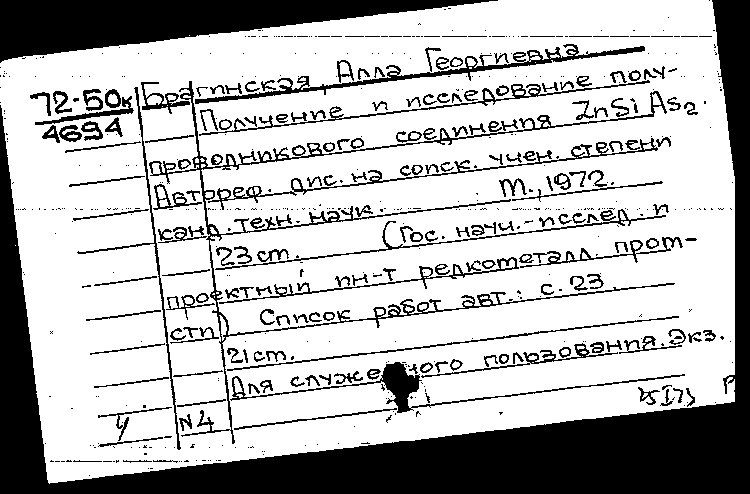 72-50к
4694
Брагинская, Алла Георгиевна.
Получение и исследование полу-
проводникового соединения ZnSiAs2.
Автореф. дис. на соиск. учен. степени
канд. техн. наук. М., 1972.
23 ст. (Гос. науч.-исслед. и
проектный ин-т редкометалл. пром-
сти) Список работ авт.: с. 23
21 ст.
Для служебного пользования. Экз.
N4